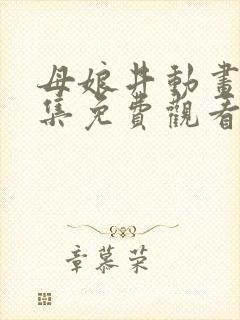 母娘丼動畫
集免費觀看
章慕荣